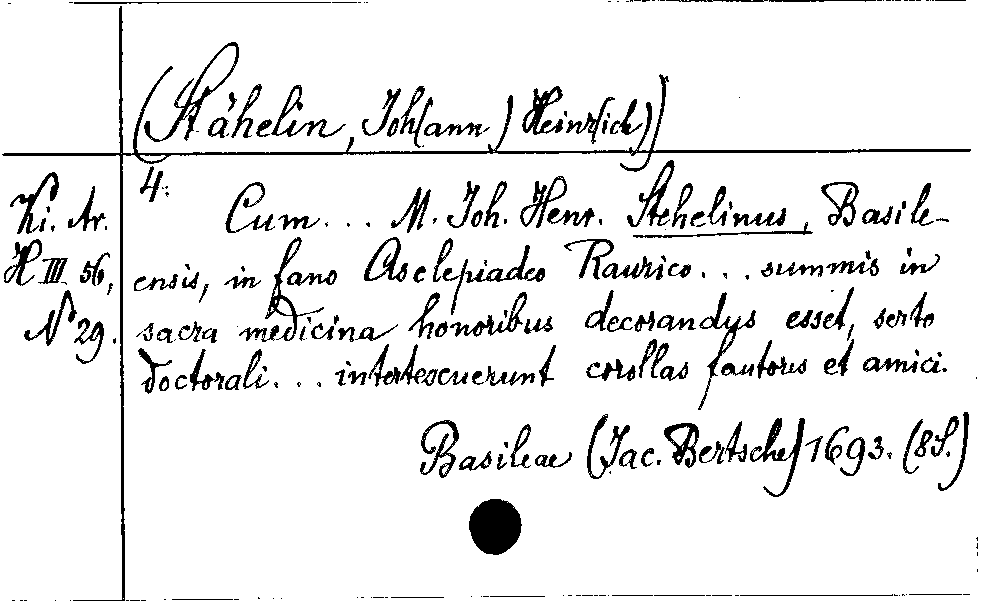 (Stähelin, Joh(ann) Heinr(ich))
4.
Ki. Ar.
H III 56,
N° 29.
Cum... M. Joh. Henr. Stehelinus, Basile-
ensis, in fano Asclepiadeo Raurico... summis in
sacra medicina honoribus decorandus esset, serto
doctorali... intertexuerunt corollas fautores et amici.
Basileae (Jac. Bertsche) 1693. (8 S.)